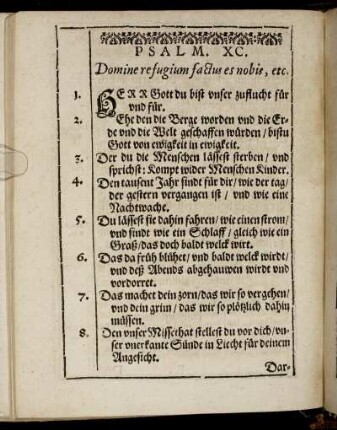 PSALM. XC.
Domine refugium factus es nobis, etc.
1. HERR Gott du bist vnser zuflucht für
vnd für.
2. Ehe den die Berge worden vnd die Er-
de vnd die Welt geschaffen würden / bistu
Gott von ewigkeit in ewigkeit.
3. Der du die Menschen lässest sterben / vnd
sprichst: Kompt wider Menschen Kinder.
4. Den tausent Jahr sindt für dir / wie der tag/
der gestern vergangen ist / vnd wie eine
Nachtwache.
5. Du lässest sie dahin fahren / wie einen strom/
vnd sindt wie ein Schlaff / gleich wie ein
Graß / das doch baldt welck wirt.
6. Das da früh blühet / vnd baldt welck wirdt/
vnd deß Abends abgehauwen wirdt vnd
vordorret.
7. Das machet dein zorn / das wir so vergehen/
vnd dein grim / das wir so plötzlich dahin
müssen.
8. Den vnser Missethat stellest du vor dich / vn-
ser vnerkante Sünde in Liecht für deinem
Angesicht.
Dar-